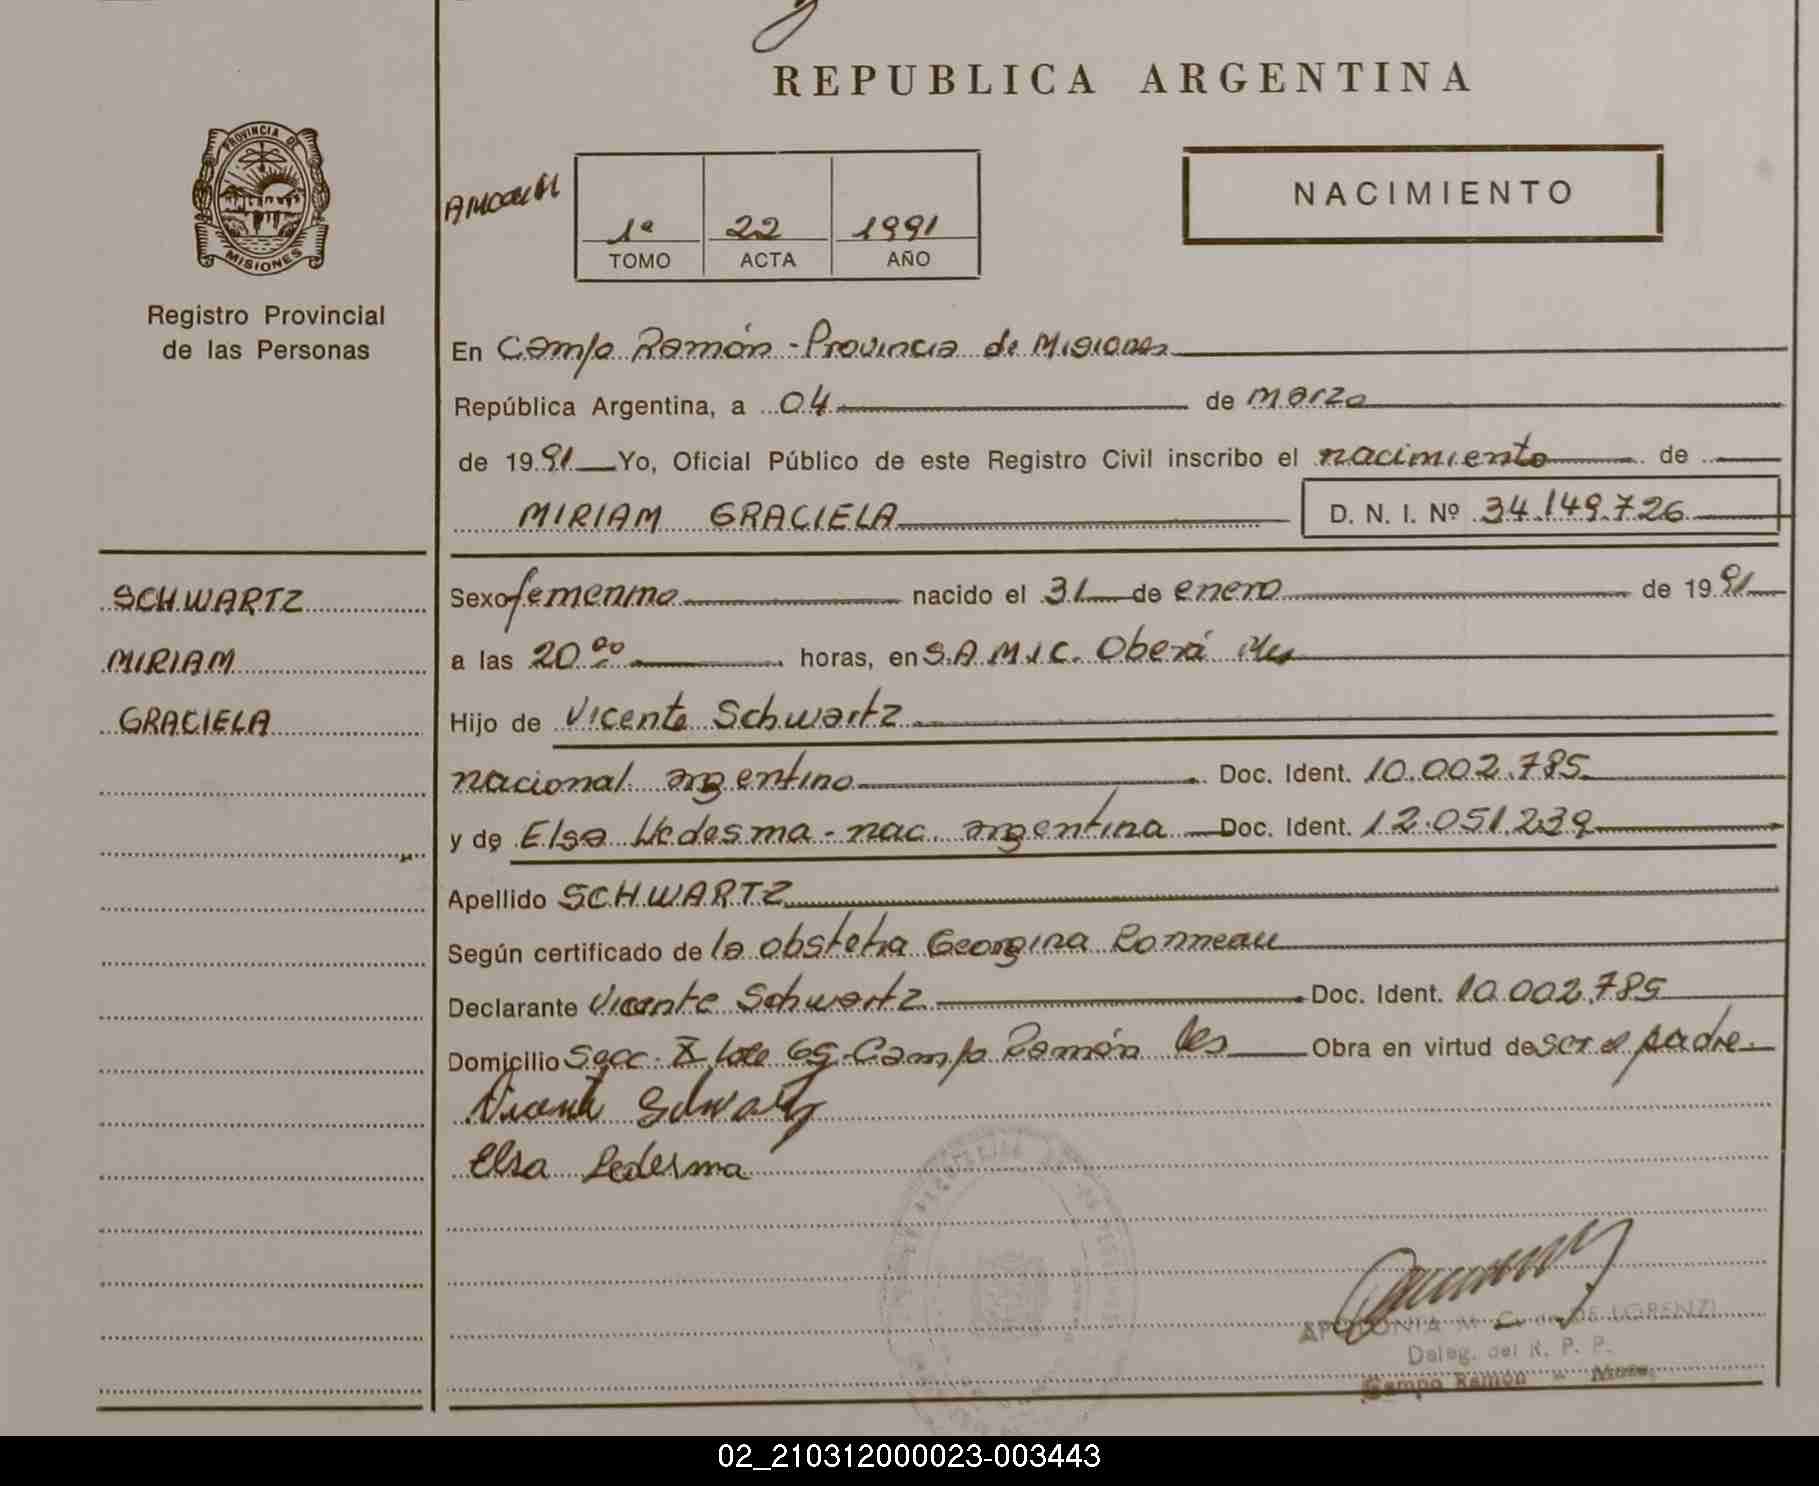 REPUBLICA ARGENTINA
PROVINCIA DE
MISIONES
Registro Provincial
de las Personas
1º 22 1991
TOMO ACTA AÑO
NACIMIENTO
En Campo Ramón - Provincia de Misiones
República Argentina, a 04 de marzo
de 1991 Yo, Oficial Público de este Registro Civil inscribo el nacimiento de
MIRIAM GRACIELA D. N. I. Nº 34.149.726
SCHWARTZ
MIRIAM
GRACIELA
Sexo femenino nacido el 31 de enero de 1991
a las 20 00 horas, en S.A.M.I.C. Oberá Mes
Hijo de Vicente Schwartz
nacional argentino Doc. Ident. 10.002.785
y de Elsa Ledesma - nac. argentina Doc. Ident. 12.051.239
Apellido SCHWARTZ
Según certificado de la obstetra Georgina Ronneau
Declarante Vicente Schwartz Doc. Ident. 10.002.785
Domicilio Secc. X lote 69 - Campo Ramón Obra en virtud de ser el padre.
Vicente Schwartz
Elsa Ledesma
DE LORENZI
Deleg. del R. P. P.
Campo Ramón - Mnes.
02_210312000023-003443